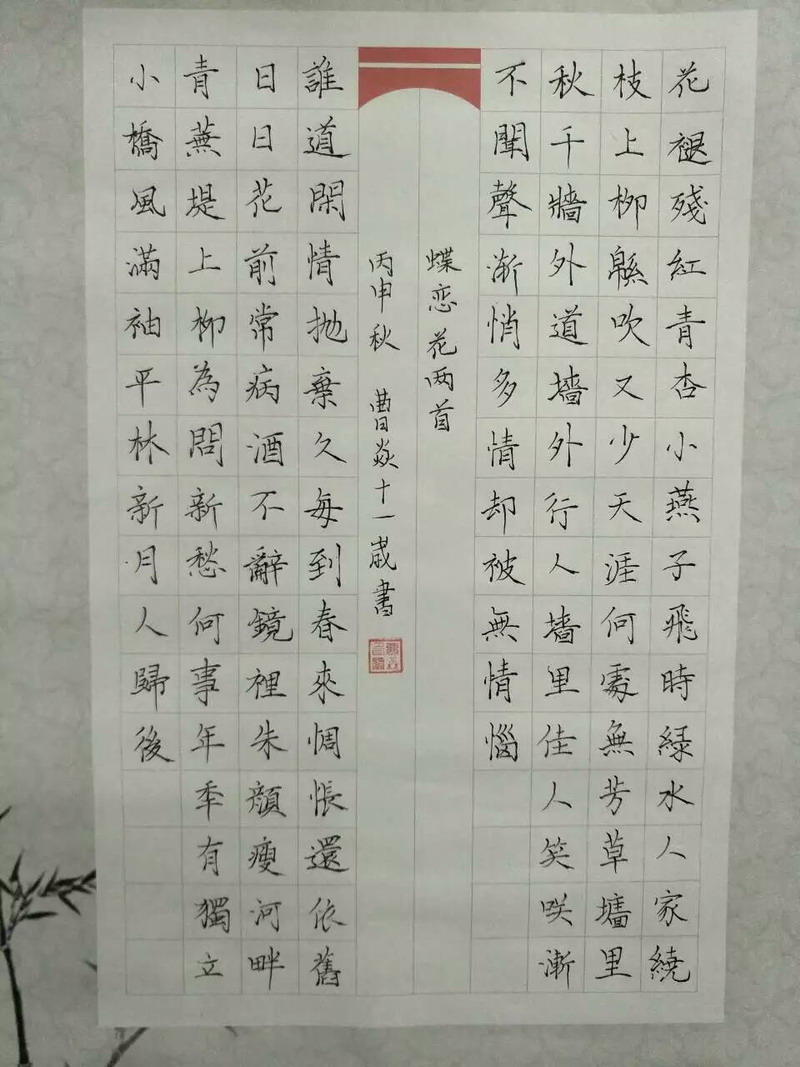 花褪殘紅青杏小燕子飛時緑水人家繞
枝上柳緜吹又少天涯何處無芳草墻里
秋千牆外道墻外行人墻里佳人笑咲漸
不聞聲漸悄多情却被無情惱
蝶恋花两首
丙申秋 曹焱十一歲書
誰道閑情抛棄久每到春來惆悵還依舊
日日花前常病酒不辭鏡裡朱顔瘦河畔
青蕪堤上柳為問新愁何事年秊有獨立
小橋風滿袖平林新月人歸後